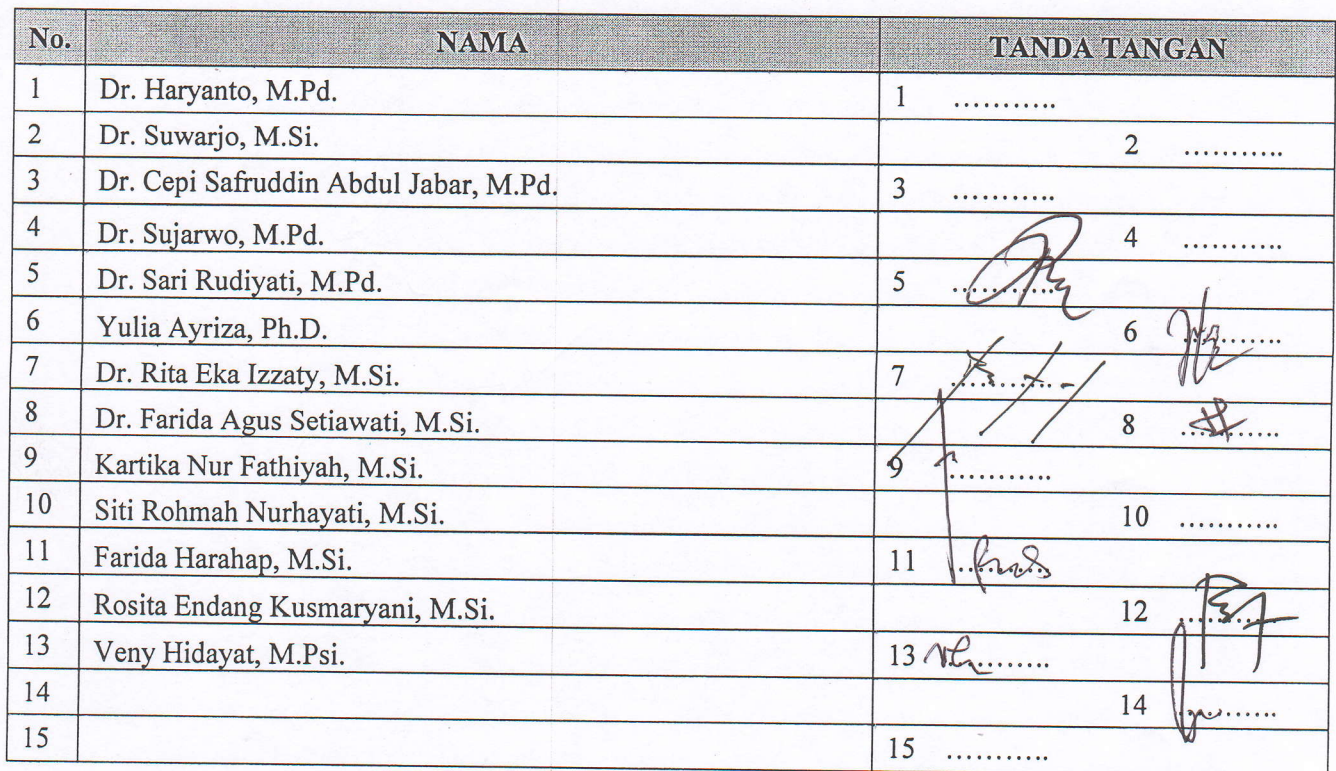 No. NAMA TANDA TANGAN
1 Dr. Haryanto, M.Pd. 1 ...........
2 Dr. Suwarjo, M.Si. 2 ...........
3 Dr. Cepi Safruddin Abdul Jabar, M.Pd. 3 ...........
4 Dr. Sujarwo, M.Pd. 4 ...........
5 Dr. Sari Rudiyati, M.Pd. 5 ...........
6 Yulia Ayriza, Ph.D. 6 ...........
7 Dr. Rita Eka Izzaty, M.Si. 7 ...........
8 Dr. Farida Agus Setiawati, M.Si. 8 ...........
9 Kartika Nur Fathiyah, M.Si. 9 ...........
10 Siti Rohmah Nurhayati, M.Si. 10 ...........
11 Farida Harahap, M.Si. 11 ...........
12 Rosita Endang Kusmaryani, M.Si. 12 ...........
13 Veny Hidayat, M.Psi. 13 ...........
14 14 ...........
15 15 ...........